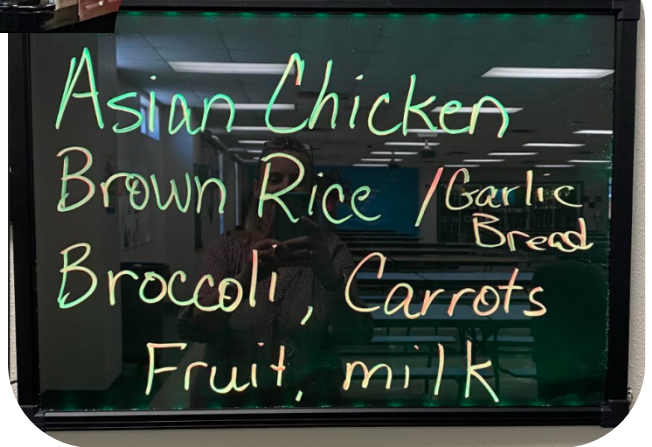 Asian Chicken
Brown Rice / Garlic
Bread
Broccoli, Carrots
Fruit, milk